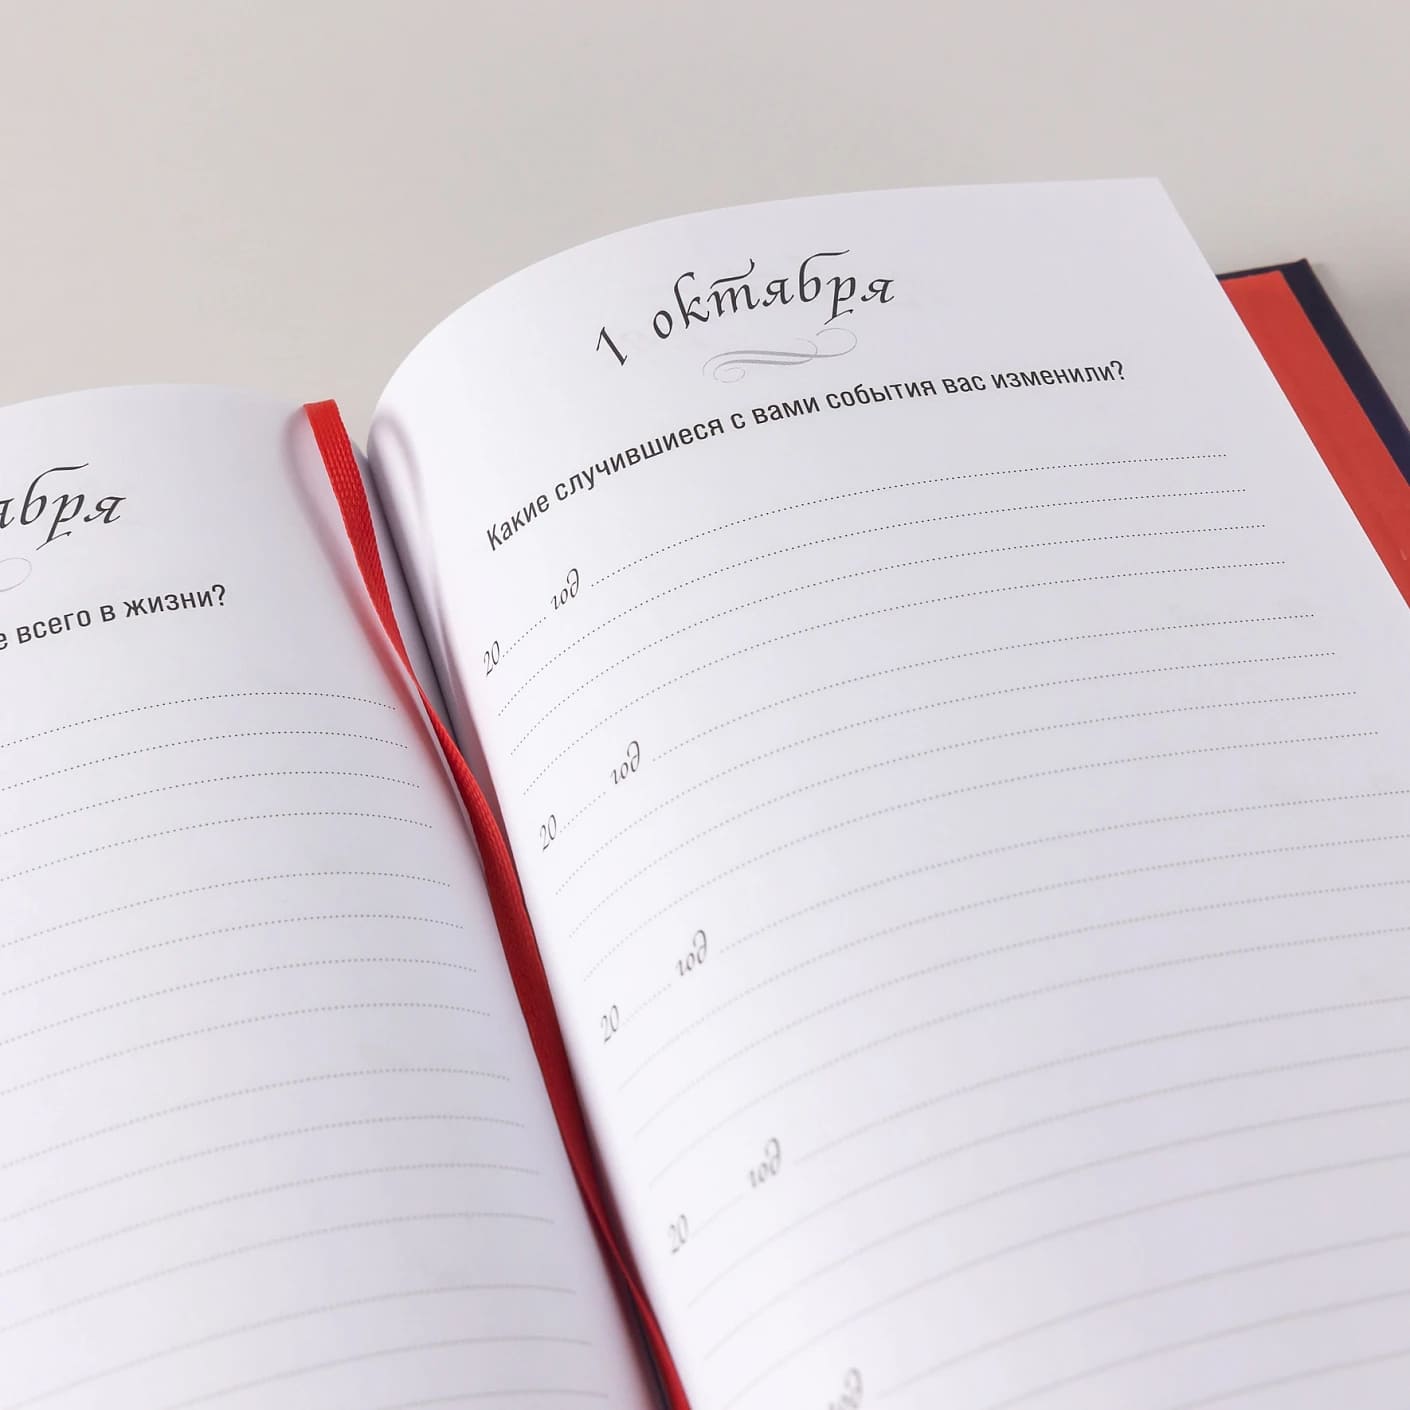 всего в жизни?
1 октября
Какие случившиеся с вами события вас изменили?
20 год
20 год
20 год
20 год
год